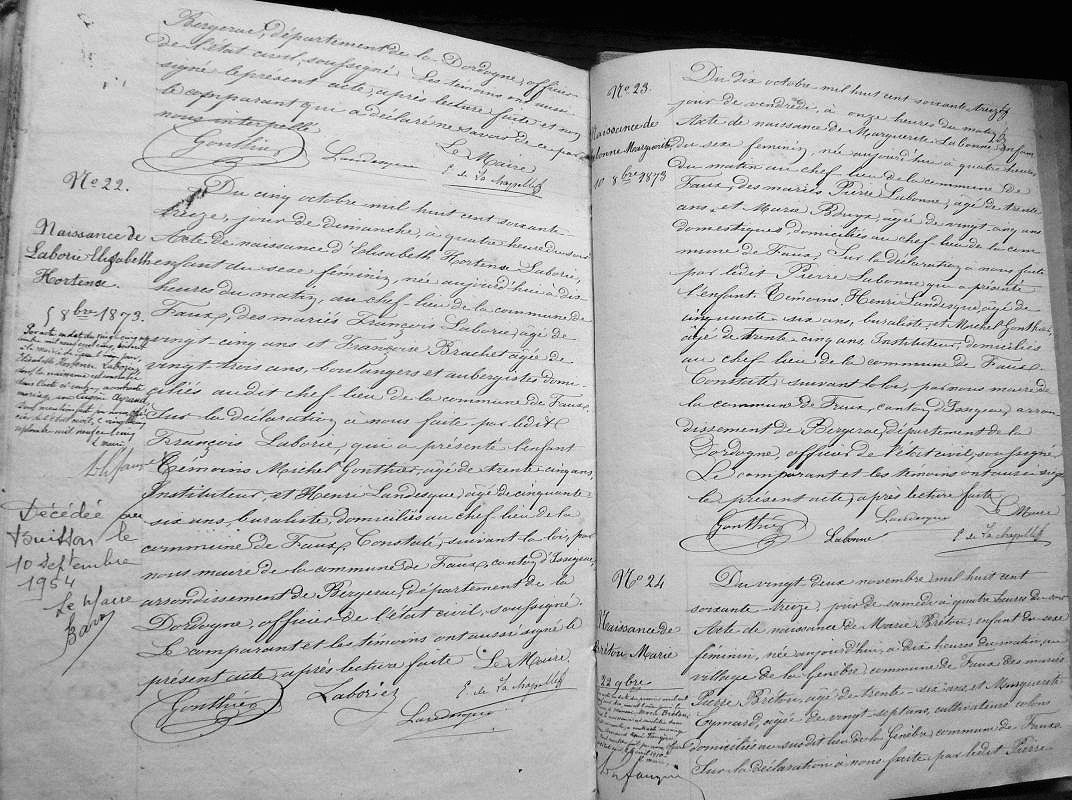 Bergerac, département de la Dordogne, officier
de l'état civil, soussigné. Les témoins ont aussi
signé le présent acte, après lecture faite et non
le comparant qui a déclaré ne savoir de ce par
nous interpellé
Gonthier
Landesque
Le Maire
E de La Chapelle
N° 22.
Naissance de
Laborie Elizabeth
Hortence.
5 8bre 1873.
Décédée
Buisson le
10 Septembre
1954
Le Maire
Du cinq octobre mil huit cent soixante
treize, jour de dimanche, à quatre heures du soir
Acte de naissance d'Elisabeth Hortence Laborie,
enfant du sexe féminin, née aujourd'hui à dix
heures du matin, au chef lieu de la commune de
Faux, des mariés François Laborie, âgé de
vingt cinq ans et Françoise Brachet âgée de
vingt trois ans, boulangers et aubergistes domi-
ciliés audit chef lieu de la commune de Faux.
Sur la déclaration à nous faite par ledit
François Laborie, qui a présenté l'enfant
Témoins Michel Gonthier, âgé de trente cinq ans,
Instituteur, et Henri Landesque, âgé de cinquante
six ans, buraliste, domiciliés au chef lieu de la
commune de Faux. Constaté, suivant la loi, par
nous maire de la commune de Faux, canton d'Issigeac,
arrondissement de Bergerac, département de la
Dordogne, officier de l'état civil, soussigné.
Le comparant et les témoins ont aussi signé le
présent acte, après lecture faite
Le Maire
Gonthier
Laboriez
E de La Chapelle
Landesque
N° 23.
Naissance de
Labonne Marguerite
10 8bre 1873
Du dix octobre mil huit cent soixante treize,
jour de vendredi, à onze heures du matin,
Acte de naissance de Marguerite Labonne, enfant
du sexe féminin, née aujourd'hui à quatre heures
du matin au chef lieu de la commune de
Faux, des mariés Pierre Labonne, âgé de trente
ans, et Marie âgée de vingt cinq ans
domestiques domiciliés au chef lieu de la com-
mune de Faux. Sur la déclaration à nous faite
par ledit Pierre Labonne qui a présenté
l'enfant. Témoins Henri Landesque, âgé de
cinquante six ans, buraliste, et Michel Gonthier,
âgé de trente cinq ans, Instituteur, domiciliés
au chef lieu de la commune de Faux.
Constaté suivant la loi, par nous maire de
la commune de Faux, canton d'Issigeac, arron-
dissement de Bergerac, département de la
Dordogne, officier de l'état civil, soussigné.
Le comparant et les témoins ont aussi signé
le présent acte, après lecture faite
Le Maire
Gonthier
Landesque
Labonne
E de La Chapelle
N° 24
Naissance de
Bréton Marie
22 9bre
Du vingt deux novembre mil huit cent
soixante treize, jour de samedi, à quatre heures du soir
Acte de naissance de Marie Bréton, enfant du sexe
féminin, née aujourd'hui, à dix heures du matin, au
village de la Genèbre commune de Faux des mariés
Pierre Bréton, âgé de trente-six ans, et Marguerite
Eymard, âgée de vingt sept ans, cultivateurs colons
domiciliés au susdit lieu de la Genèbre, commune de Faux.
Sur la déclaration à nous faite par ledit Pierre